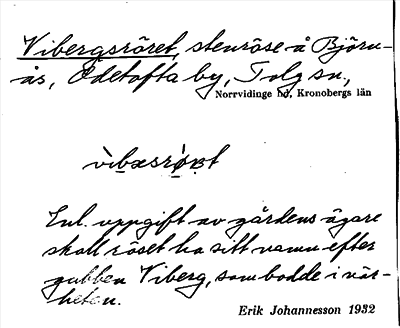 Vibergsröret, stenröse å Björn-
ås, Ödetofta by, Tolg sn,
Norrvidinge hd, Kronobergs län
Enl. uppgift av gårdens ägare
skall röset ha sitt namn efter
gubben Viberg, som bodde i när-
heten.
Erik Johannesson 1932